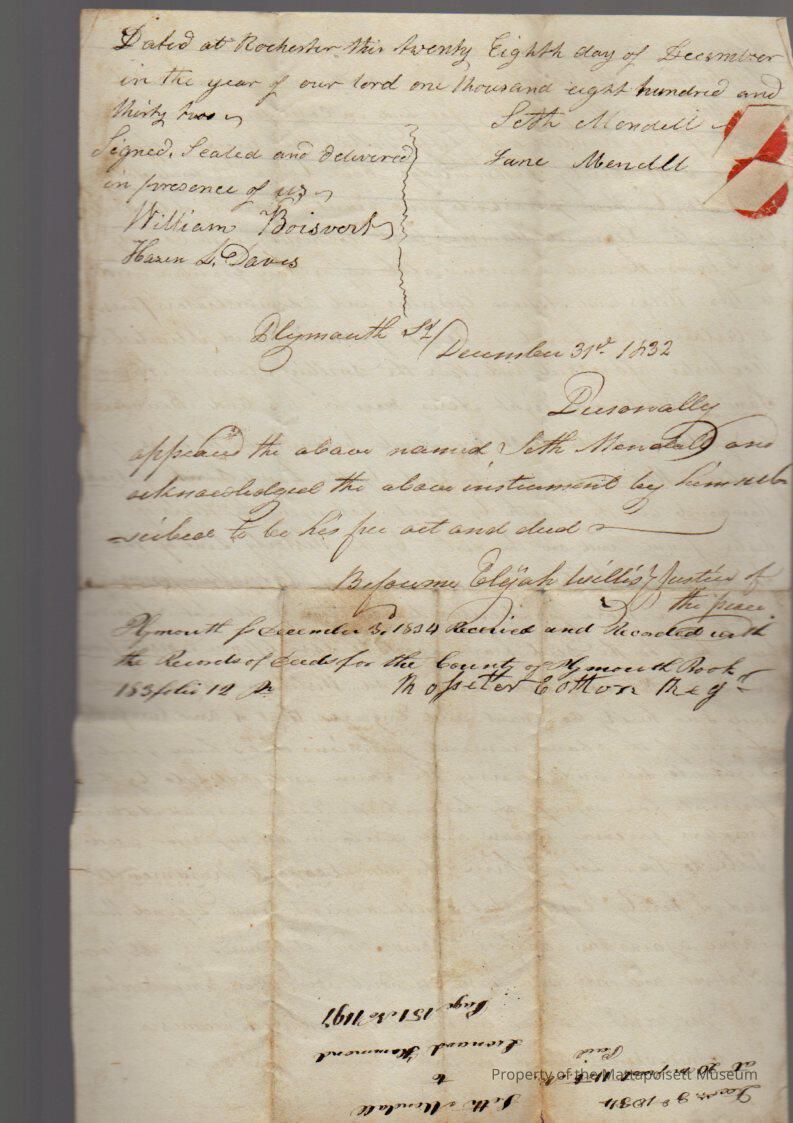 Dated at Rochester this twenty Eighth day of December
in the year of our lord one thousand eight hundred and
thirty two
Seth Mendell
Signed, Sealed and delivered
Jane Mendell
in presence of us
William Boisvert
Hazen L. Davis
Plymouth Ss
December 31st 1832
Personally
appeared the above named Seth Mendall and
acknowledged the above instrument by him sub
scibee to be his free act and deed
Before me Elijah Willis Justice of
the peace.
Plymouth ss December 3, 1834 Received and Recorded with
the Records of Deeds for the County of Plymouth Book
183 folio 12
Rosseter Cotton Regr
Seth Mendall
to
Leonard Hammond
Page 151
Decr 3d 1834
at
Paid
Property of the Mattapoisett Museum